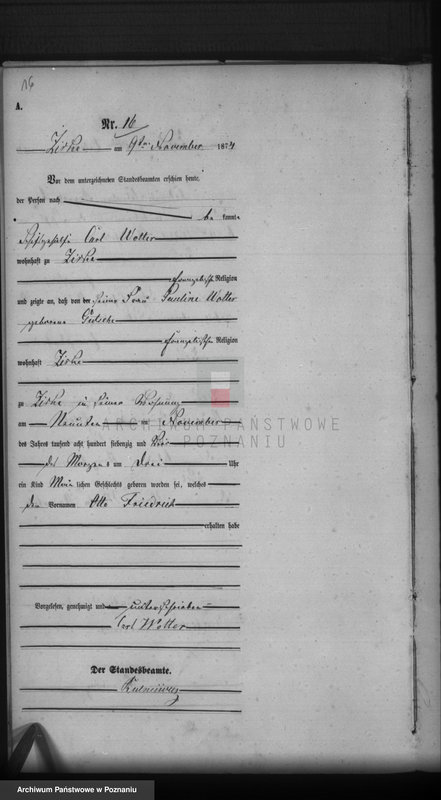 16
A.
Nr. 16
Zirke am 9ten November 1874
Vor dem unterzeichneten Standesbeamten erschien heute,
der Person nach
be kannt
Carl Wotter
wohnhaft zu Zirke
evangelischer Religion
und zeigte an, daß von der seiner Frau Pauline Wotter
geborene
evangelischer Religion
wohnhaft Zirke
zu Zirke in seiner Wohnung
am Neunten November
des Jahres tausend acht hundert siebenzig und Vier
des Morgens um Drei Uhr
ein Kind Männlichen Geschlechts geboren worden sei, welches
den Vornamen Otto Friedrich
erhalten habe
Vorgelesen, genehmigt und unterschrieben
Carl Wotter
Der Standesbeamte.
ARCHIWUM PAŃSTWOWE
POZNANIU
Archiwum Państwowe w Poznaniu